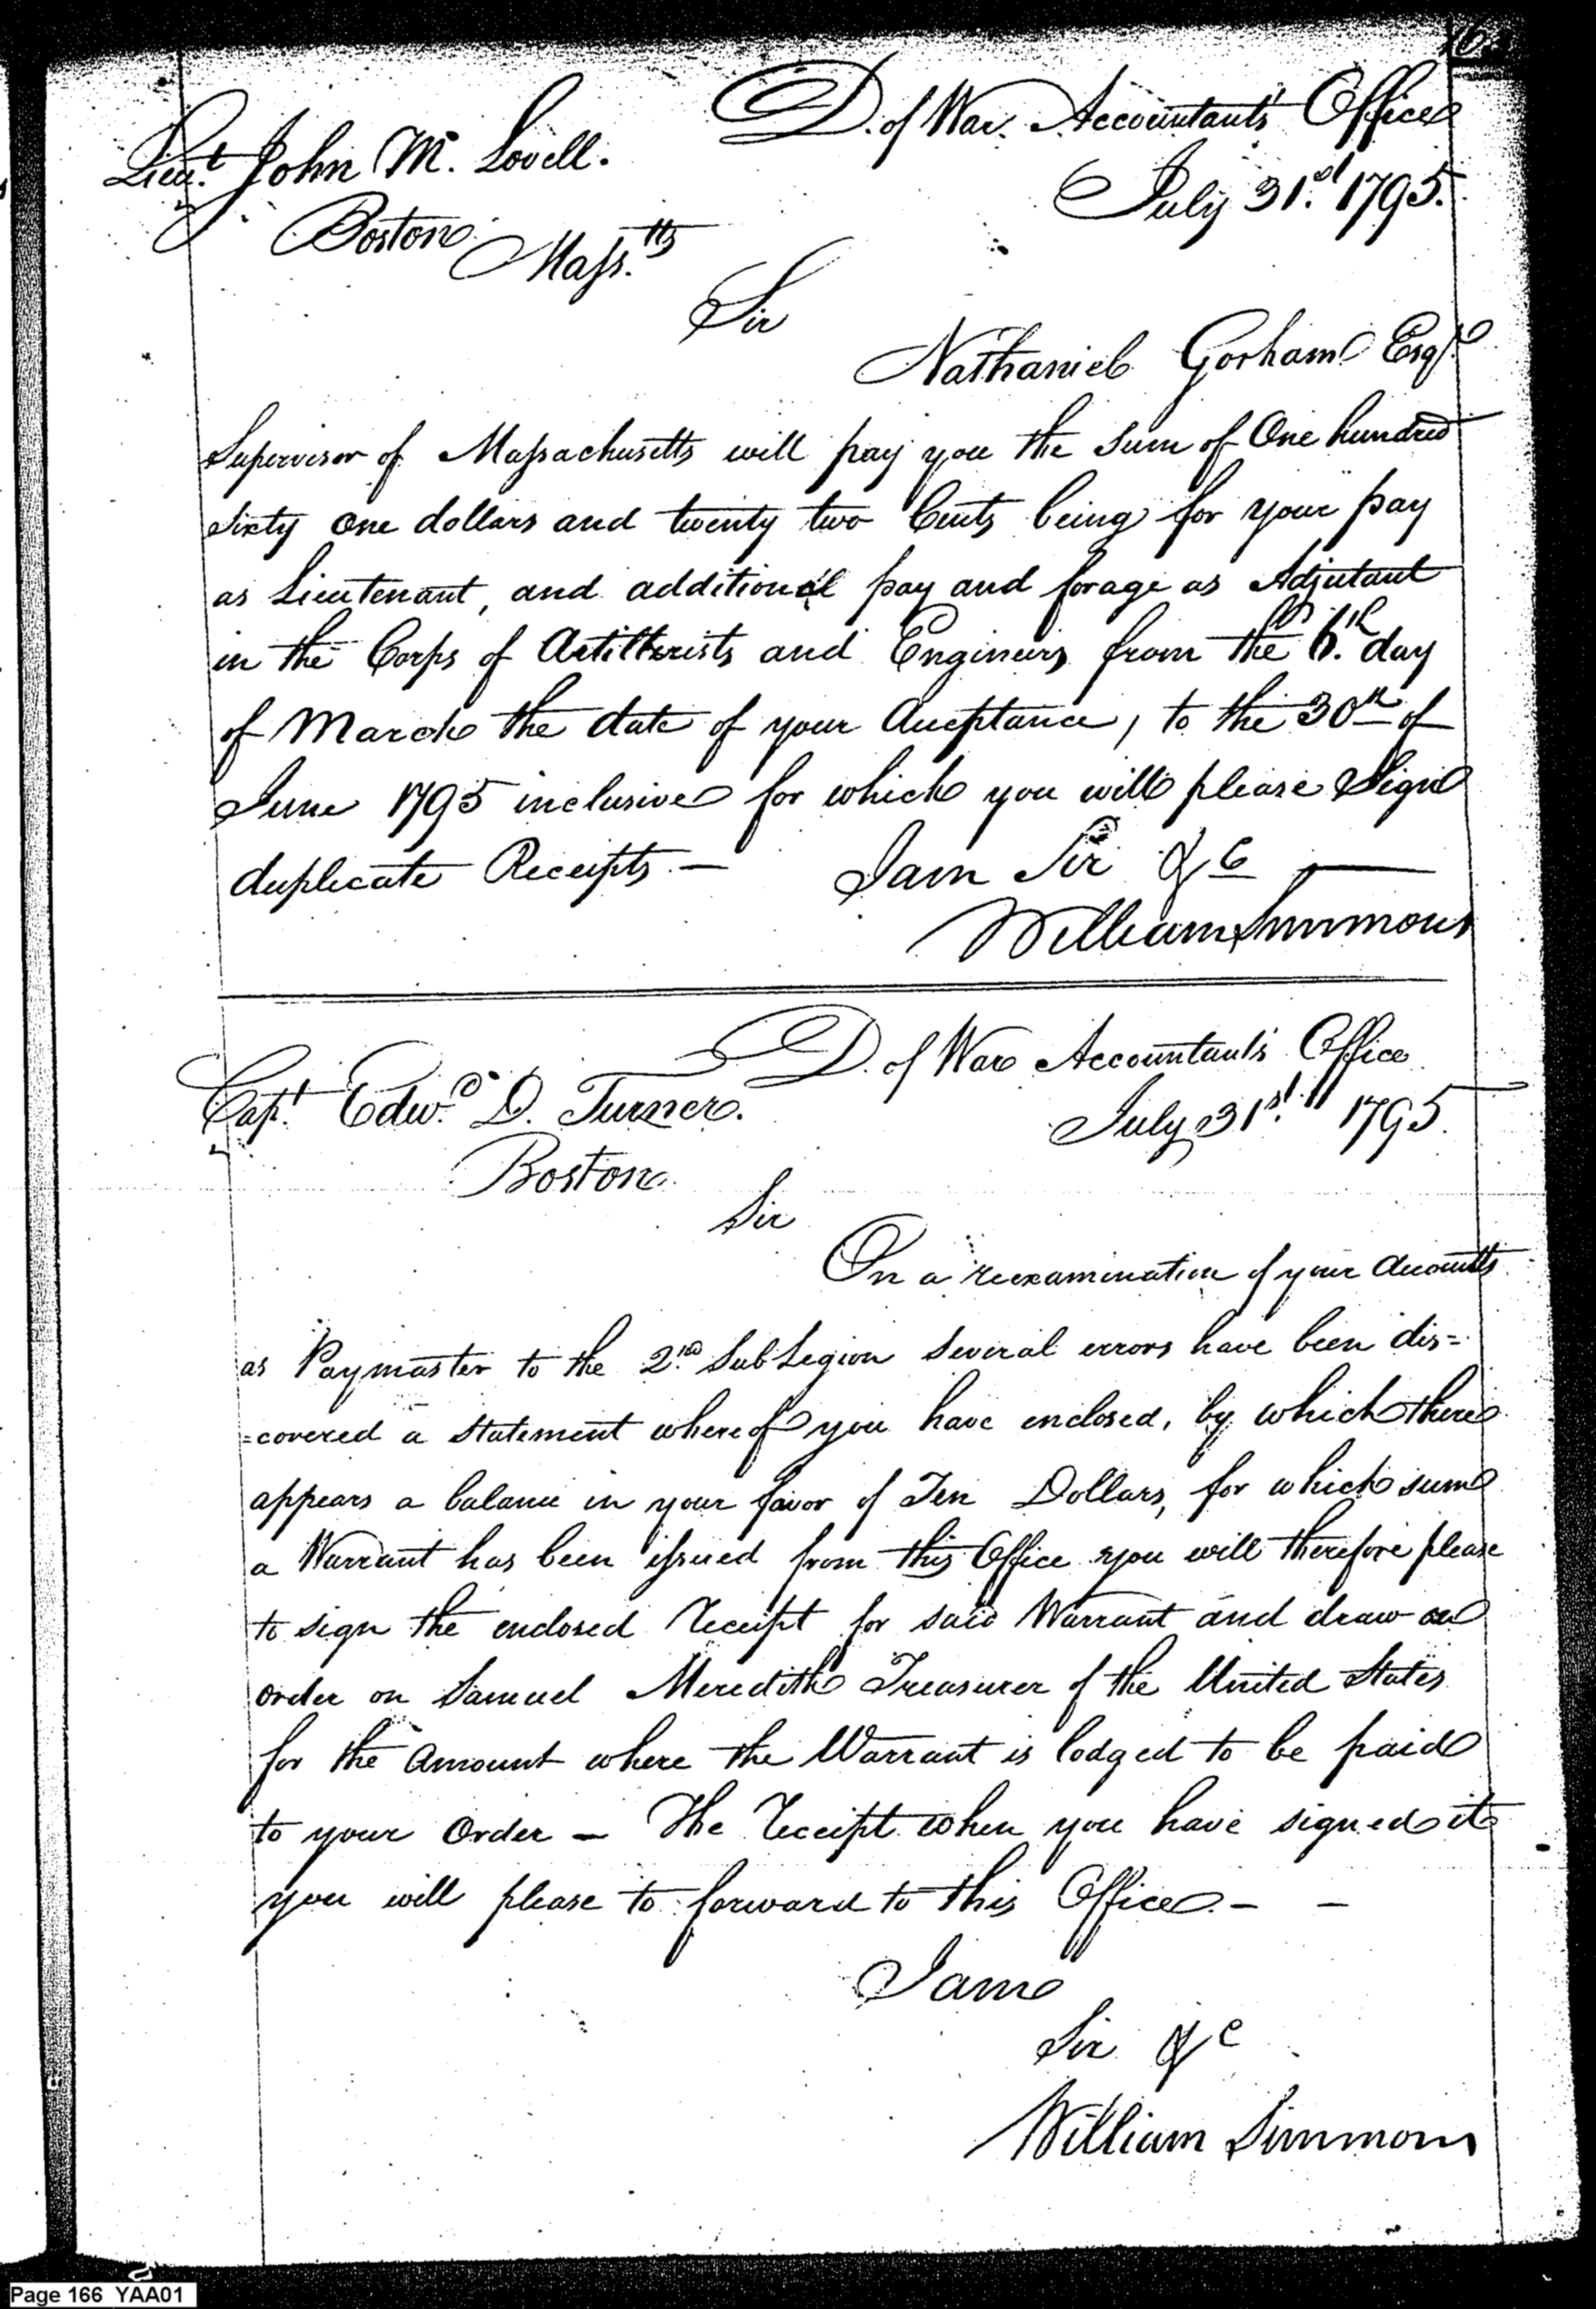 D. of War Accountants Office
Lieut. John M. Lovell.
July 31st. 1795.
Boston
Massts.
Sir
Nathaniel Gorham Esqr
Supervisor of Massachusetts will pay you the Sum of One hundred
sixty one dollars and twenty two Cents being for your pay
as Lieutenant, and additional pay and forage as Adjutant
in the Corps of Artillerists and Engineers from the 6th. day
of March the date of your Acceptance, to the 30th of
June 1795 inclusive for which you will please Sign
duplicate Receipts —
I am Sir &c —
William Simmons
D. of War Accountant's Office
Capt. Edwd. D. Turner.
July 31st. 1795.
Boston.
Sir
On a reexamination of your Accounts
as Paymaster to the 2nd. Sub Legion several errors have been dis=
=covered a statement whereof you have enclosed, by which there
appears a balance in your favor of Ten Dollars, for which sum
a Warrant has been issued from this Office you will therefore please
to sign the enclosed Receipt for said Warrant and draw an
order on Samuel Meredith Treasurer of the United States
for the Amount where the Warrant is lodged to be paid
to your Order — The Receipt when you have signed it
you will please to forward to this Office. — —
I am
Sir &c
William Simmons
Page 166 YAA01